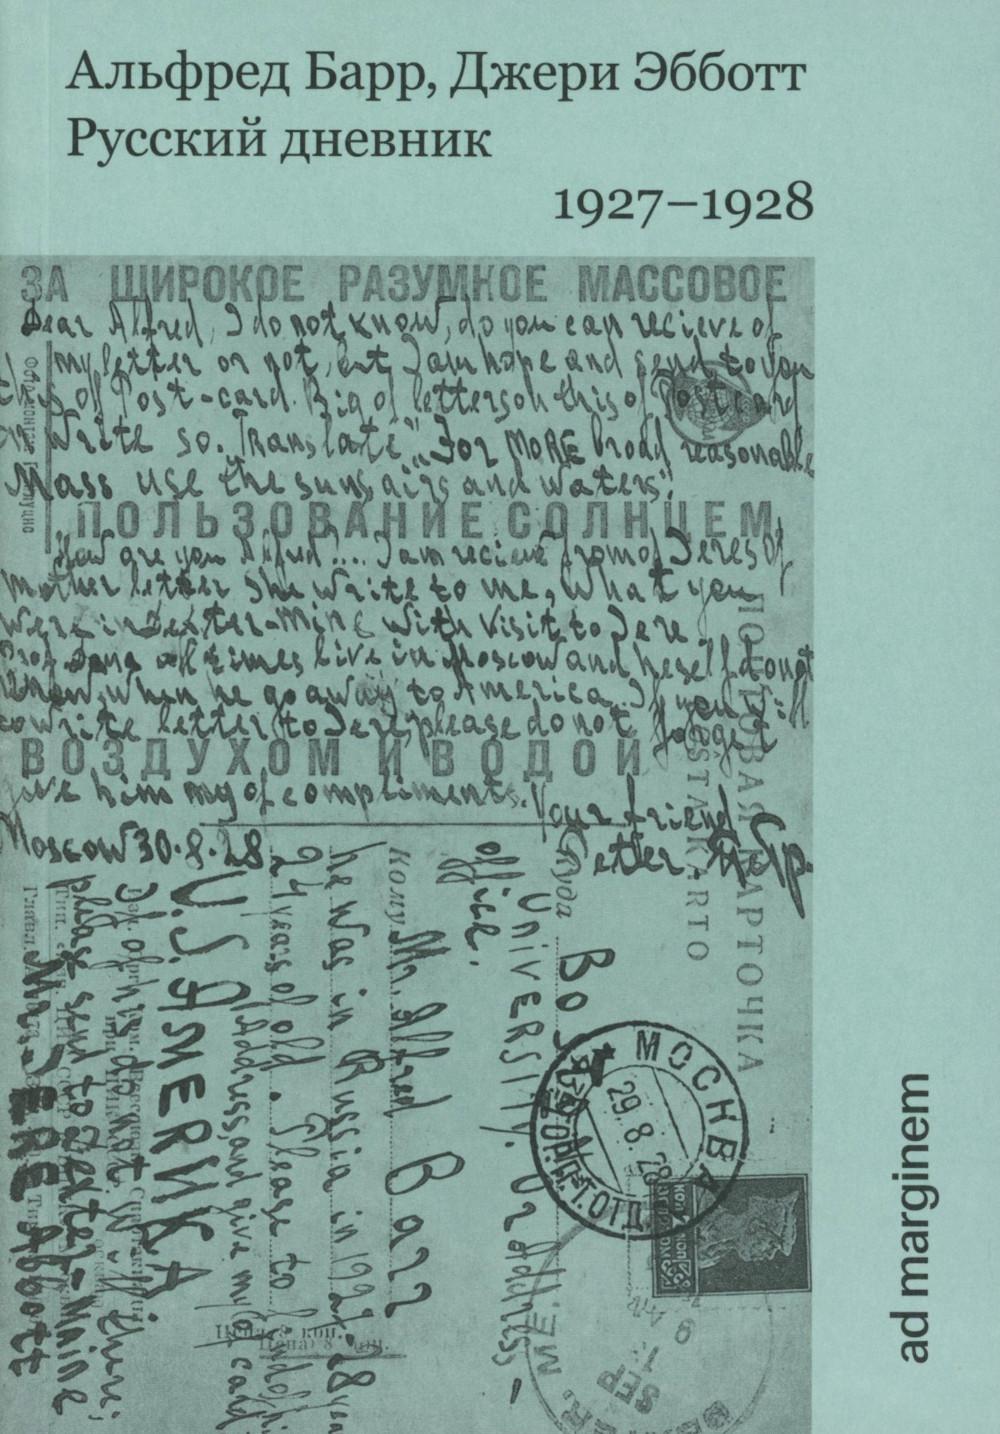 Альфред Барр, Джери Эбботт
Русский дневник
1927–1928
ЗА ШИРОКОЕ РАЗУМНОЕ МАССОВОЕ
Dear Alfred, I do not know, do you can recieve of
my letter or not, but I am hope and send to you
this of Post-card. Big of letters on this of Postcard
Write so. Translate „For MORE broad reasonable
Mass use the suns, airs and waters".
ПОЛЬЗОВАНИЕ СОЛНЦЕМ
How are you Alfred.... I am recieve from of Jeres of
mother letter She write to me, What you
were in Dexter-Mine with visit to Jere
of times live in Moscow and heself do not
know, when he go away to America. If you will
write letter to Jere, please do not forget
ВОЗДУХОМ И ВОДОЙ
give him my of compliments. Your friend
Moscow 30.8.28
Petter
ПОЧТОВАЯ КАРТОЧКА
POSTA KARTO
Куда
Boston
University. Or address-
office.
Mr. Alfred Barr
Кому
he was in Russia in 1927-28 year
24 years of old. Please to find of his
Address, and give my of card
U.S. АМЕRIKA
If of his do not will there:
please send to Dexter-Maine
Mr- JERE Abbott
МОСКВА
29.8.28
SEP
ad marginem